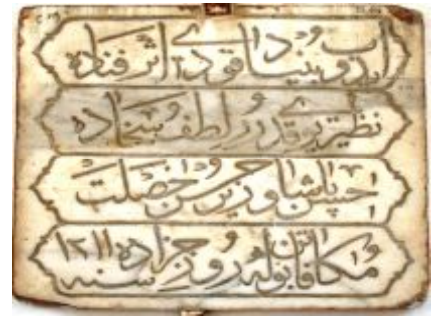 ایدوب بنیاد قودی اثر فناده
نظیری یوقدر لطف و سخاده
حسن پاشا وزیر حسن خصلت
مکافاتن بوله روز جزاده سنه ١٢١١